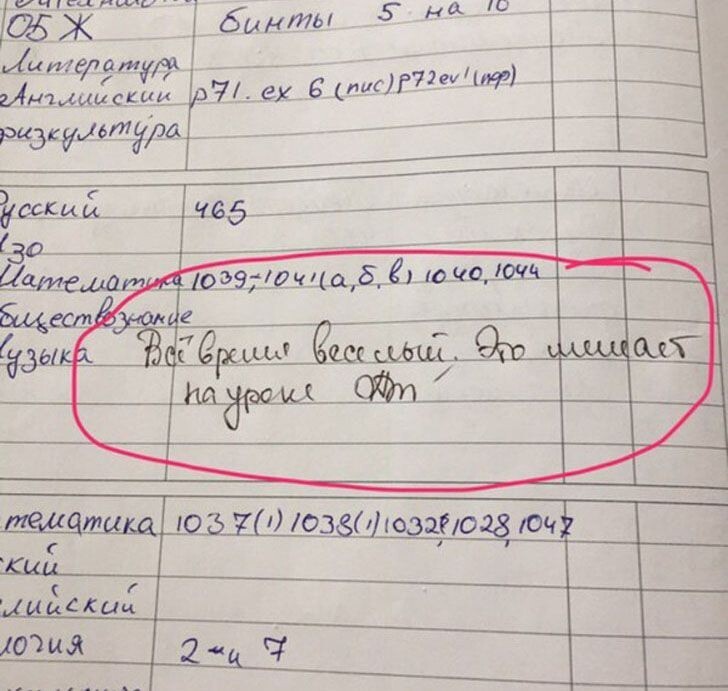 ОБЖ бинты 5 на 10
Литература
Английский p71. ex 6 (пис) p72 ex1 (пер)
физкультура
Русский 465
ИЗО
Математика 1039, 1041 (а, б, в) 1040, 1044
бществознание
узыка Всё время веселый. Это мешает
на уроке
тематика 1037(1) 1038(1) 1032, 1028, 1047
ский
лийский
логия 2 - и 7